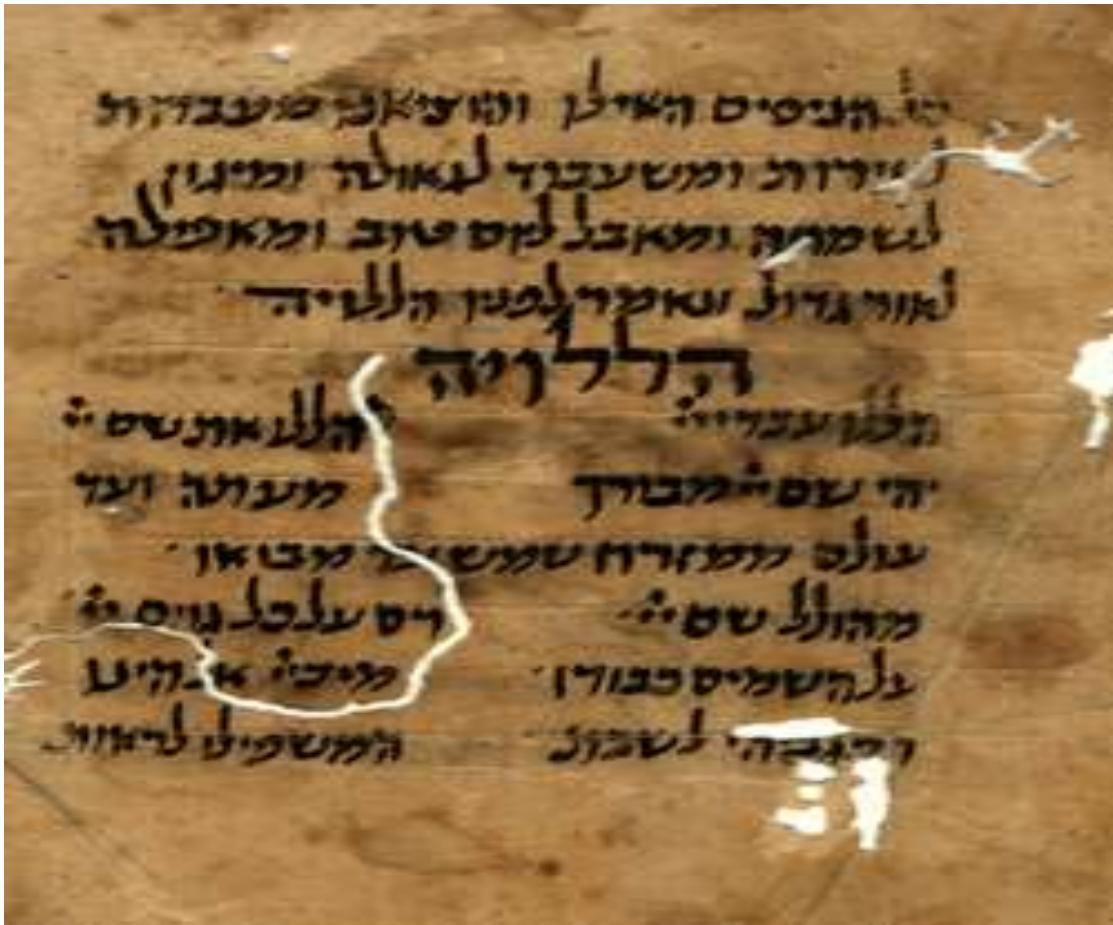 הניסים האילו והוציאנו מעבדות
לחירות ומשעבוד לגאולה ומיגון
לשמחה ומאבל ליום טוב ומאפילה
לאור גדול ונאמר לפניו הללויה
הללויה
הללו עבדי ייי הללו את שם ייי
יהי שם ייי מבורך מעתה ועד
עולם ממזרח שמש עד מבואו
מהולל שם ייי רם על כל גוים ייי
על השמים כבודו מי כייי אלהינו
המגביהי לשבת המשפילי לראות